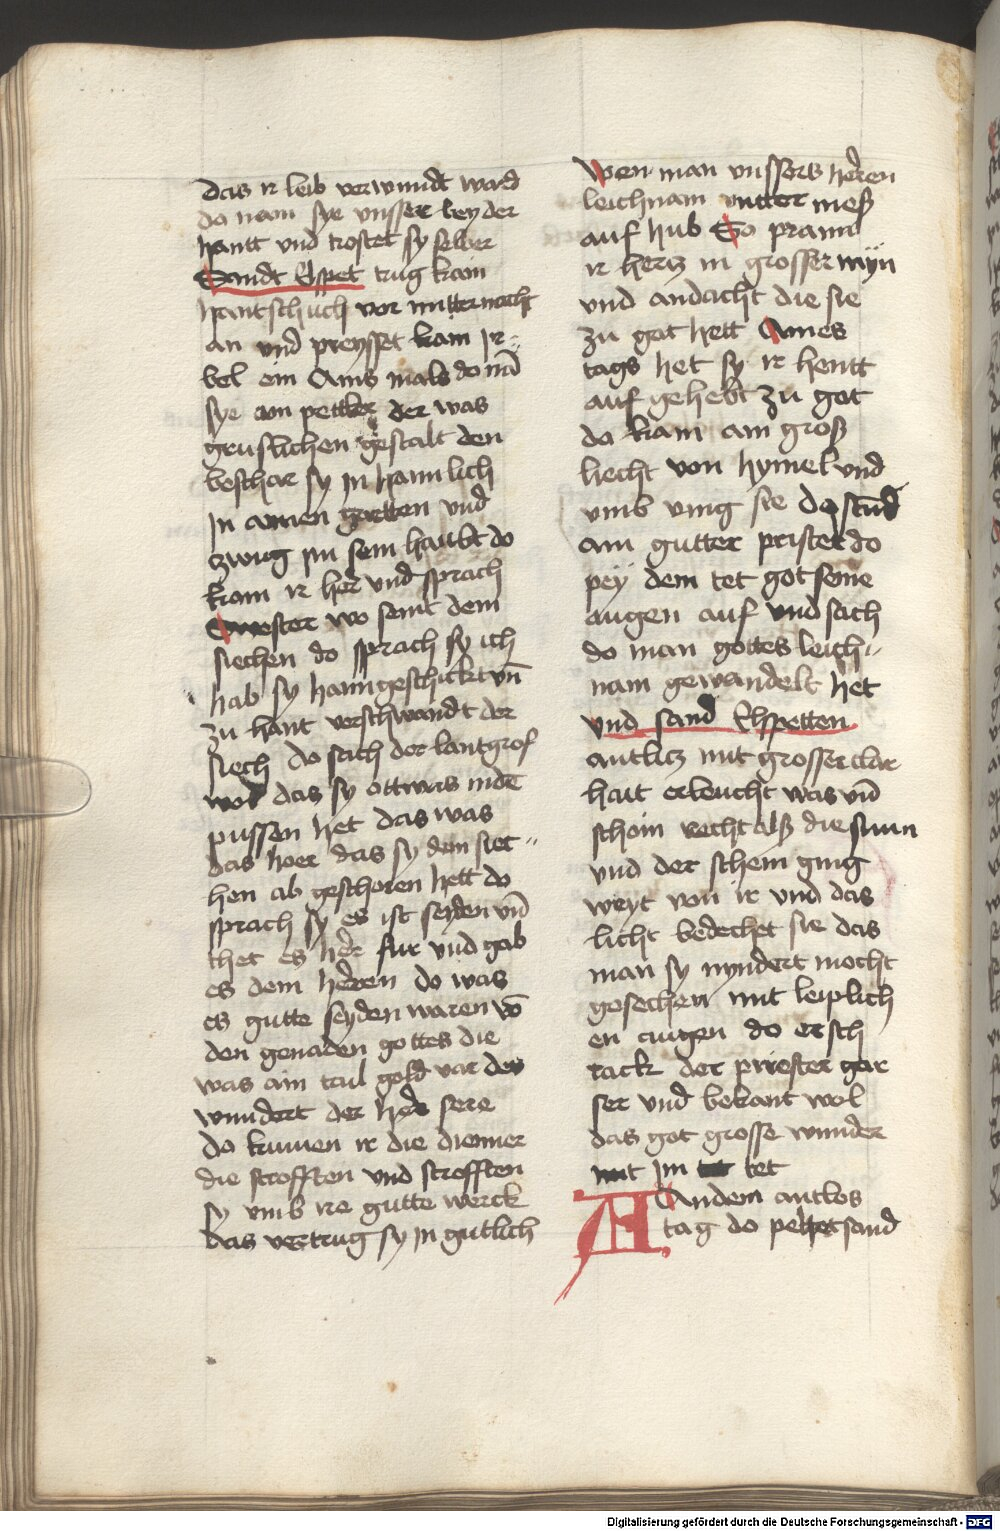 das ir leib verwundt ward
do nam sye unsser leyder
hantt und trostet sy selber
Sandt Elspet trug kain
hantschuch vor mitternacht
an und preysset kam ir
bel ein Ains mals do nā
sye ain pettler der was
gruslichen gestalt den
beschar sy in hamlich
In ainen gartten und
zwug im sein haubt do
kam ir her und sprach
Swester wo seint dem
siechen do sprach sy ich
hab sy haim geschickt vn̄
zu hant verschwandt der
siech do sach der lantgrof
wol das sy ottwas in de
pussen het das was
das hoer das sy dem siec-
hen ab geschoren hett do
sprach sy es ist seyden vn̄
thet es her fur und gab
es dem heren do was
es gutte seyden waren vō
den genaden gottes die
was ain tail gold var des
wundert der her sere
do kumen ir die diener
die strofften und strofften
sy umb ire gutte werck
das vertrug sy in gutlich
Wen man unssers heren
leichnam unter mess
auf hub So prann
ir hertz in grosser myn
und andacht die sie
zu got hett Aines
tags het sy ir hentt
auf gehebt zu got
do kam ain gross
liecht von hymel und
umb ving sie do stund
ain gutter prister do
pey dem tet got seine
augen auf und sach
do man gottes leich-
nam gewandelt het
und sand Elspetten
antlitz mit grosser clar
hait erleucht was vn̄
schoin recht alss die sunn
und der schein ging
weyt von ir und das
licht bedechet sie das
man sy nyndert mocht
gesechen mit leiplich
en augen do ersch
rack der priester gar
ser und bekant wol
das got grosse wunder
mit im tet
An dem antlos
tag do pettet sand
Digitalisierung gefördert durch die Deutsche Forschungsgemeinschaft - DFG